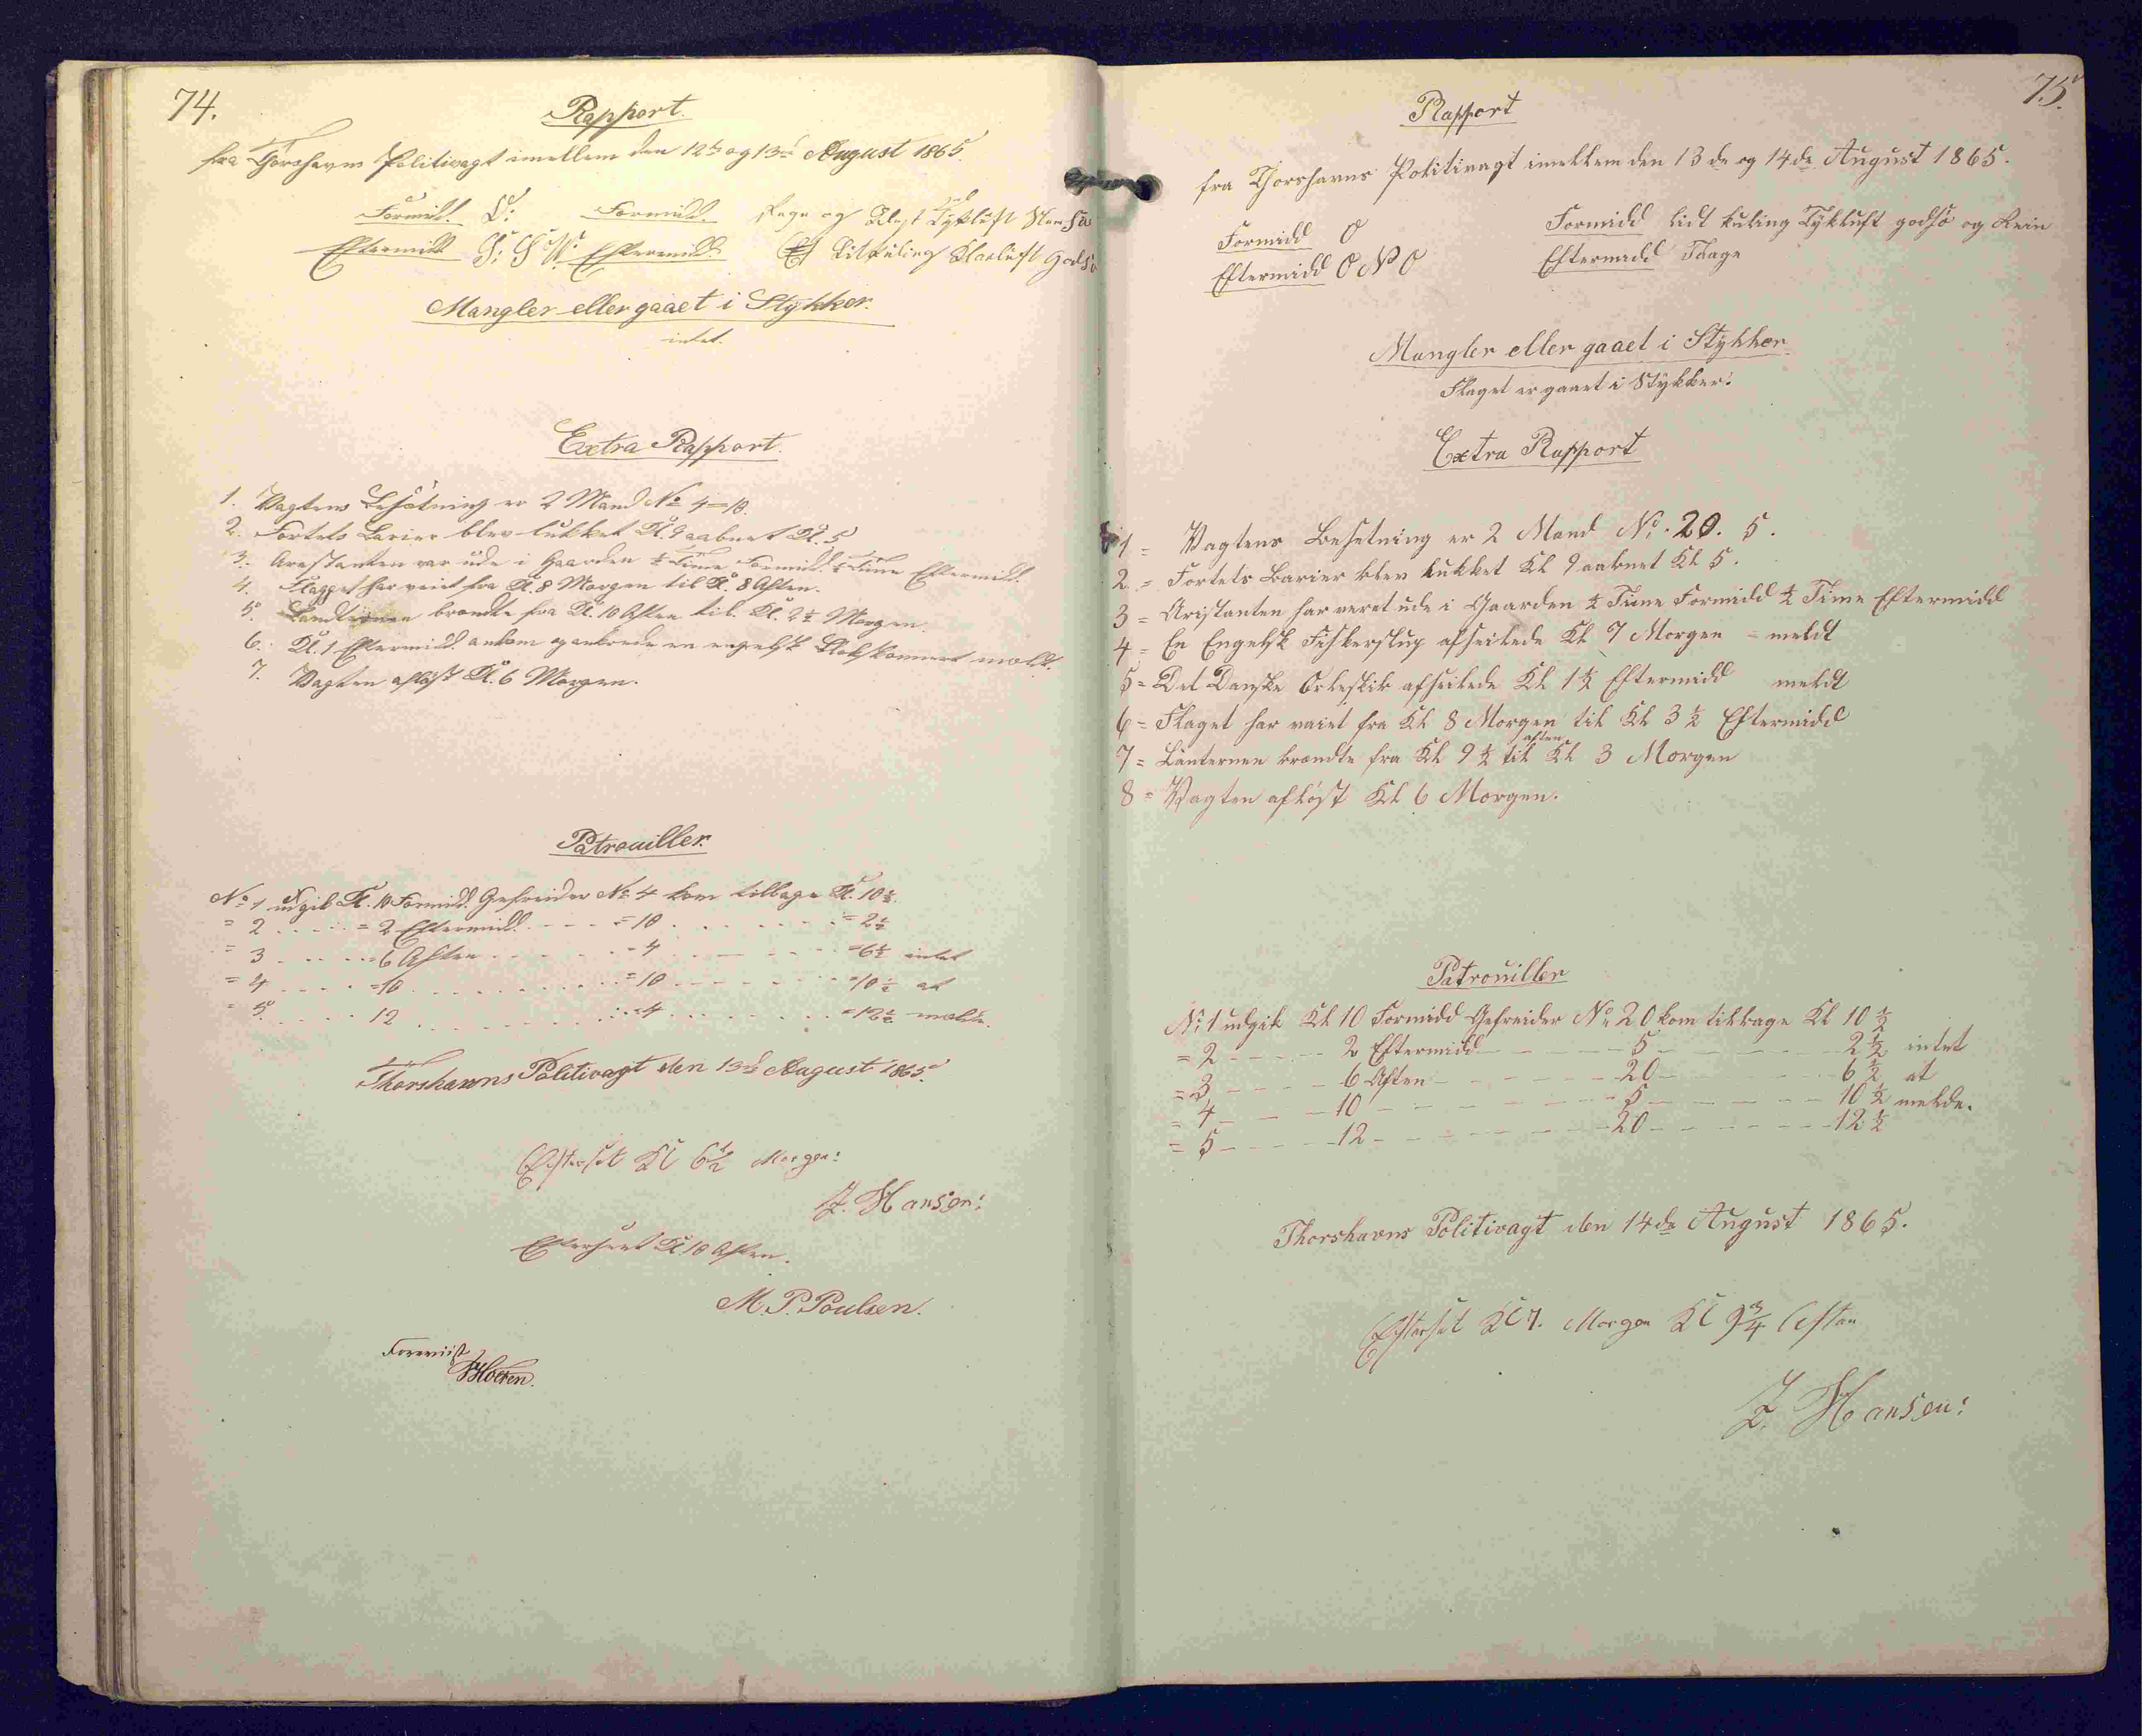 74.
Rapport.
fra Thorshavns Politivagt imellem den 12te og 13de August 1865.
Formidd. S: Formidd. og Blæst Tykluft
Eftermidd. Eftermidd. Lit Kuling Klarluft Godsø
Mangler eller gaaet i Stykker.
intet.
Extra Rapport.
1. Vagtens Besætning er 2 Mand No 4=10.
2. Fortets Barier blev lukket Kl. 9 aabnet Kl. 5
3. Arestanten var ude i Gaarden ½ Time Formidd. ½ Time Eftermidd.
4. Flagget har veiet fra Kl. 8 Morgen til Kl. 8 Aften.
5. brændte fra Kl. 10 Aften til Kl. 2½ Morgen.
6. Kl. 1 Eftermidd. ankom opankrede en engelsk meldt.
7. Vagten afløst Kl. 6 Morgen.
Patrouiller.
No 1 udgik Kl. 10 Formidd. Gefreider No 4 kom tilbage Kl. 10½.
= 2 . . . . . = 2 Eftermidd. . . . = 10 . . . . . . = 2½
= 3 . . . . . = 6 Aften . . . . . = 4 . . . . . . = 6½ intet
= 4 . . . . = 10 . . . . . . . . = 10 . . . . . . = 10½ at
= 5. . . . . 12 . . . . . . . . = 4 . . . . . . = 12½ melde.
Thorshavns Politivagt den 13de August 1865.
Efterset Kl 6½ Morgen:
J. Hansen:
Efterseet Kl 10 Aften.
M. P. Poulsen.
Foreviist
75.
Rapport
fra Thorshavns Politivagt imellem den 13de og 14de August 1865.
Formidd O Formidd lidt kuling Tykluft godsø og Rein
Eftermidd O N O Eftermidd Taage
Mangler eller gaaet i Stykker
Flaget er gaaet i Stykker.
Extra Rapport
1 = Vagtens Besetning er 2 Mand No. 20. 5.
2 = Fortets Barier blev lukket Kl 9 aabnet Kl 5.
3 = Aristanten har veret ude i Gaarden ½ Time Formidd ½ Time Eftermidd
4 = En Engelsk Fiskerslup afseilede Kl 7 Morgen = meldt
5 = Det Danske afseilede Kl 1½ Eftermidd meldt
6 = Flaget har vaiet fra Kl 8 Morgen til Kl 3½ Eftermidd
7 = Lanternen brændte fra Kl 9½ aften til Kl 3 Morgen
8 = Vagten afløst Kl 6 Morgen.
Patrouiller
No 1 udgik Kl 10 Formidd Gefreider No 20 kom tilbage Kl 10½
= 2 - - - - - 2 Eftermidd - - - - - 5 - - - - - 2½ intet
= 3 - - - - - 6 Aften - - - - - 20 - - - - - 6½ at
= 4 - - - - 10 - - - - - - - 5 - - - - - 10½ melde.
= 5 - - - - 12 - - - - - - - 20 - - - - - 12½
Thorshavns Politivagt den 14de August 1865.
Efterset Kl 7. Morgen Kl 9¾ Aften
J. Hansen: